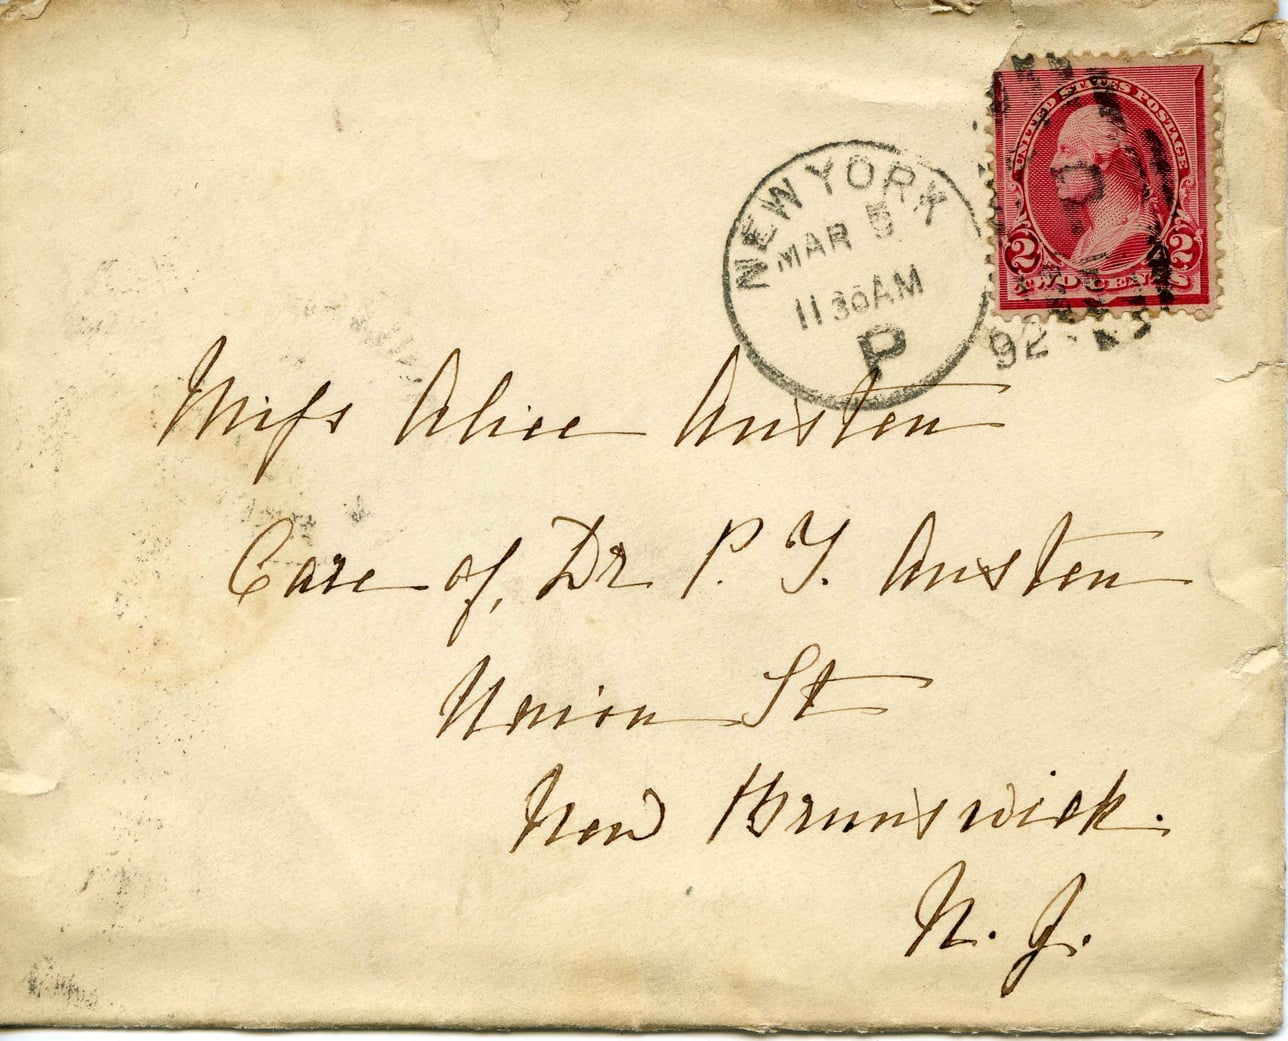 UNITED STATES POSTAGE
2 2
TWO CENTS
NEW YORK
MAR 5
11 30 AM
P
92
D
Miss Alice Austen
Care of, Dr P. T. Austen
Union St
New Brunswick.
N. J.